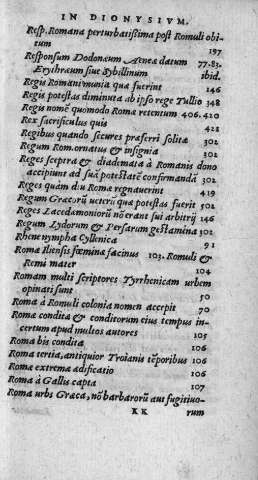 IN DIONYSIVM.
Resp. Romana perturbatißima post Romuli obi-
tum 197
Responsum Dodonæum Aeneæ datum 77.83.
Erythræum siue Sybillinum ibid.
Regis Romani munia quæ fuerint 146
Regis potestas diminuta ab ipso rege Tullio 348
Regis nomē quomodo Romæ retentum 406.420
Rex sacrificulus quis 421
Regibus quando secures præferri solitæ 302
Regum Rom. ornatus & insignia 302
Reges sceptra & diademata à Romanis dono
accipiunt ad suā potestatē confirmandā 302
Reges quàm diu Romæ regnauerint 419
Regum Græcorū ueterū quæ potestas fuerit 502
Reges Lacedæmoniorū nō erant sui arbitrij 146
Regum Lydorum & Persarum gestamina 302
Rhene nympha Cyllenica 91
Roma Iliensis fœmina facinus 103. Romuli &
Remi mater 104
Romam multi scriptores Tyrrhenicam urbem
opinati sunt 50
Roma à Romuli colonia nomen accepit 70
Romæ conditæ & conditorum eius tempus in-
certum apud multos autores 105
Roma bis condita 106
Roma tertia, antiquior Troianis tēporibus 106
Romæ extrema ædificatio 106
Roma à Gallis capta 107
Roma urbs Græca, nō barbarorū aut fugitiuo-
KK rum